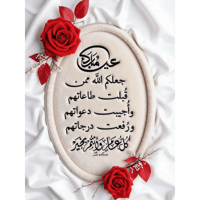 عيد مبارك
جعلكم الله ممن
قُبلت طاعاتهم
وأُجيبت دعواتهم
ورُفعت درجاتهم
كل عام وأنتم بخير